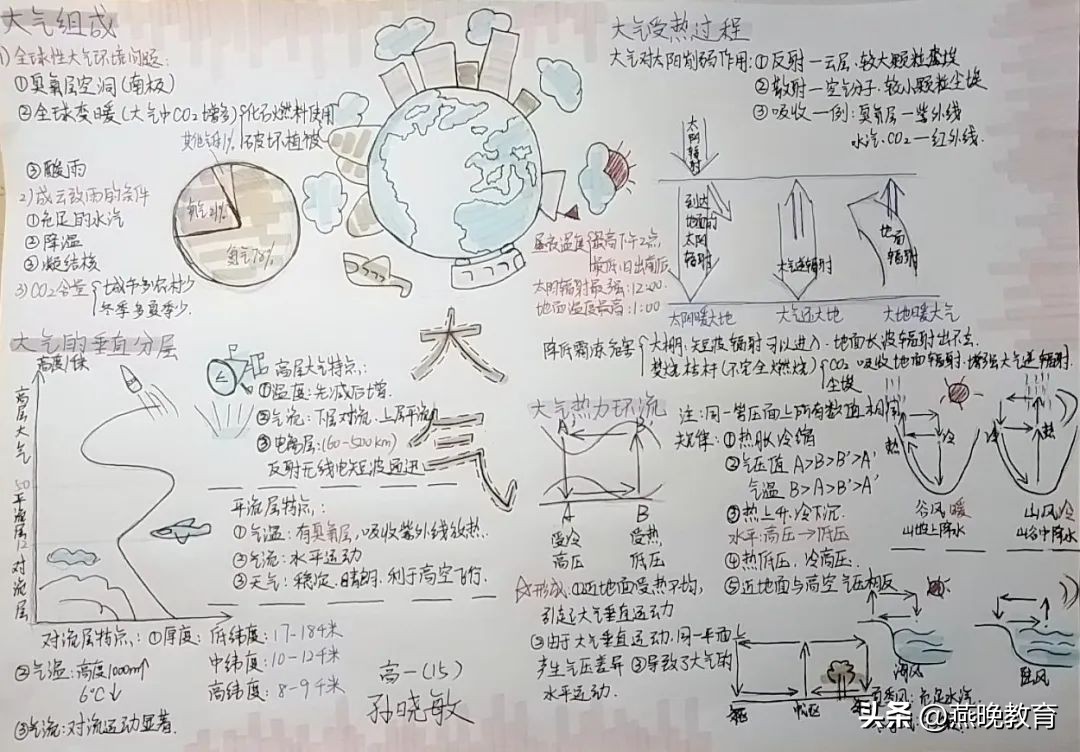 大气组成
1)全球性大气环境问题:
①臭氧层空洞(南极)
②全球变暖(大气中CO2增多){化石燃料使用
破坏植被
其他气体1%
氧气21%
氮气78%
③酸雨
2)成云致雨的条件
①充足的水汽
②降温
③凝结核
3)CO2含量{城市多农村少
冬季多夏季少.
大气受热过程
大气对太阳削弱作用:①反射—云层,较大颗粒尘埃
②散射—空气分子,较小颗粒尘埃
③吸收—例:臭氧层—紫外线
水汽、CO2—红外线.
太阳辐射
到达地面的太阳辐射
大气逆辐射
地面辐射
太阳暖大地
大气还大地
大地暖大气
昼夜温度{最高:下午2点,
最低:日出前后
太阳辐射最强:12:00.
地面温度最高:1:00
降低霜冻危害{大棚:短波辐射可以进入,地面长波辐射出不去.
焚烧桔杆(不完全燃烧){CO2 吸收地面辐射.增强大气逆辐射.
尘埃
大气
大气的垂直分层
高度/km
高层大气
50
平流层
12
对流层
高层大气特点:
①温度:先减后增.
②气流:下层对流,上层平流
③电离层:(60-500km)
反射无线电短波通迅
平流层特点:
①气温:有臭氧层,吸收紫外线放热.
②气流:水平运动
③天气:稳定.晴朗,利于高空飞行.
对流层特点:①厚度:低纬度:17-18千米
中纬度:10-12千米
高纬度:8-9千米
②气温:高度1000m↑
6℃↓
③气流:对流运动显著.
高一(15)
孙晓敏
大气热力环流
A' B'
A B
受冷 受热
高压 低压
注:同一等压面上所有数值相同
规律:①热胀冷缩
②气压值 A>B>B'>A'
气温 B>A>B'>A'
③热上升.冷下沉.
水平:高压→低压
④热低压,冷高压.
⑤近地面与高空气压相反
形成:①近地面受热不均,
引起大气垂直运动
②由于大气垂直运动,同一平面上
产生气压差异 ③导致了大气的
水平运动.
热 冷
冷 热
谷风暖
山坡上降水
山风冷
山谷中降水
海风
陆风
郊区 市区
头条 @燕晚教育